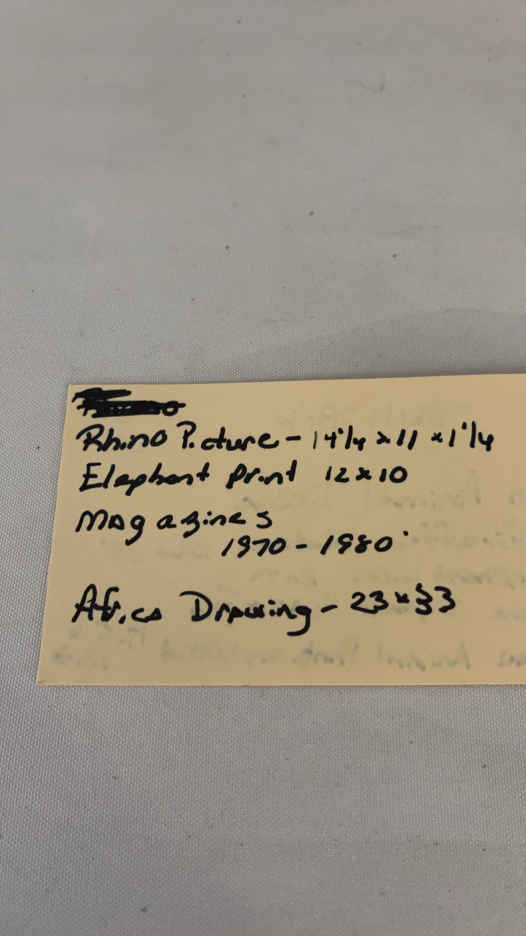 Rhino Picture - 14 1/4 x 11 x 1 1/4
Elephant Print 12 x 10
Magazines
1970 - 1980
Africa Drawing - 23 x 33